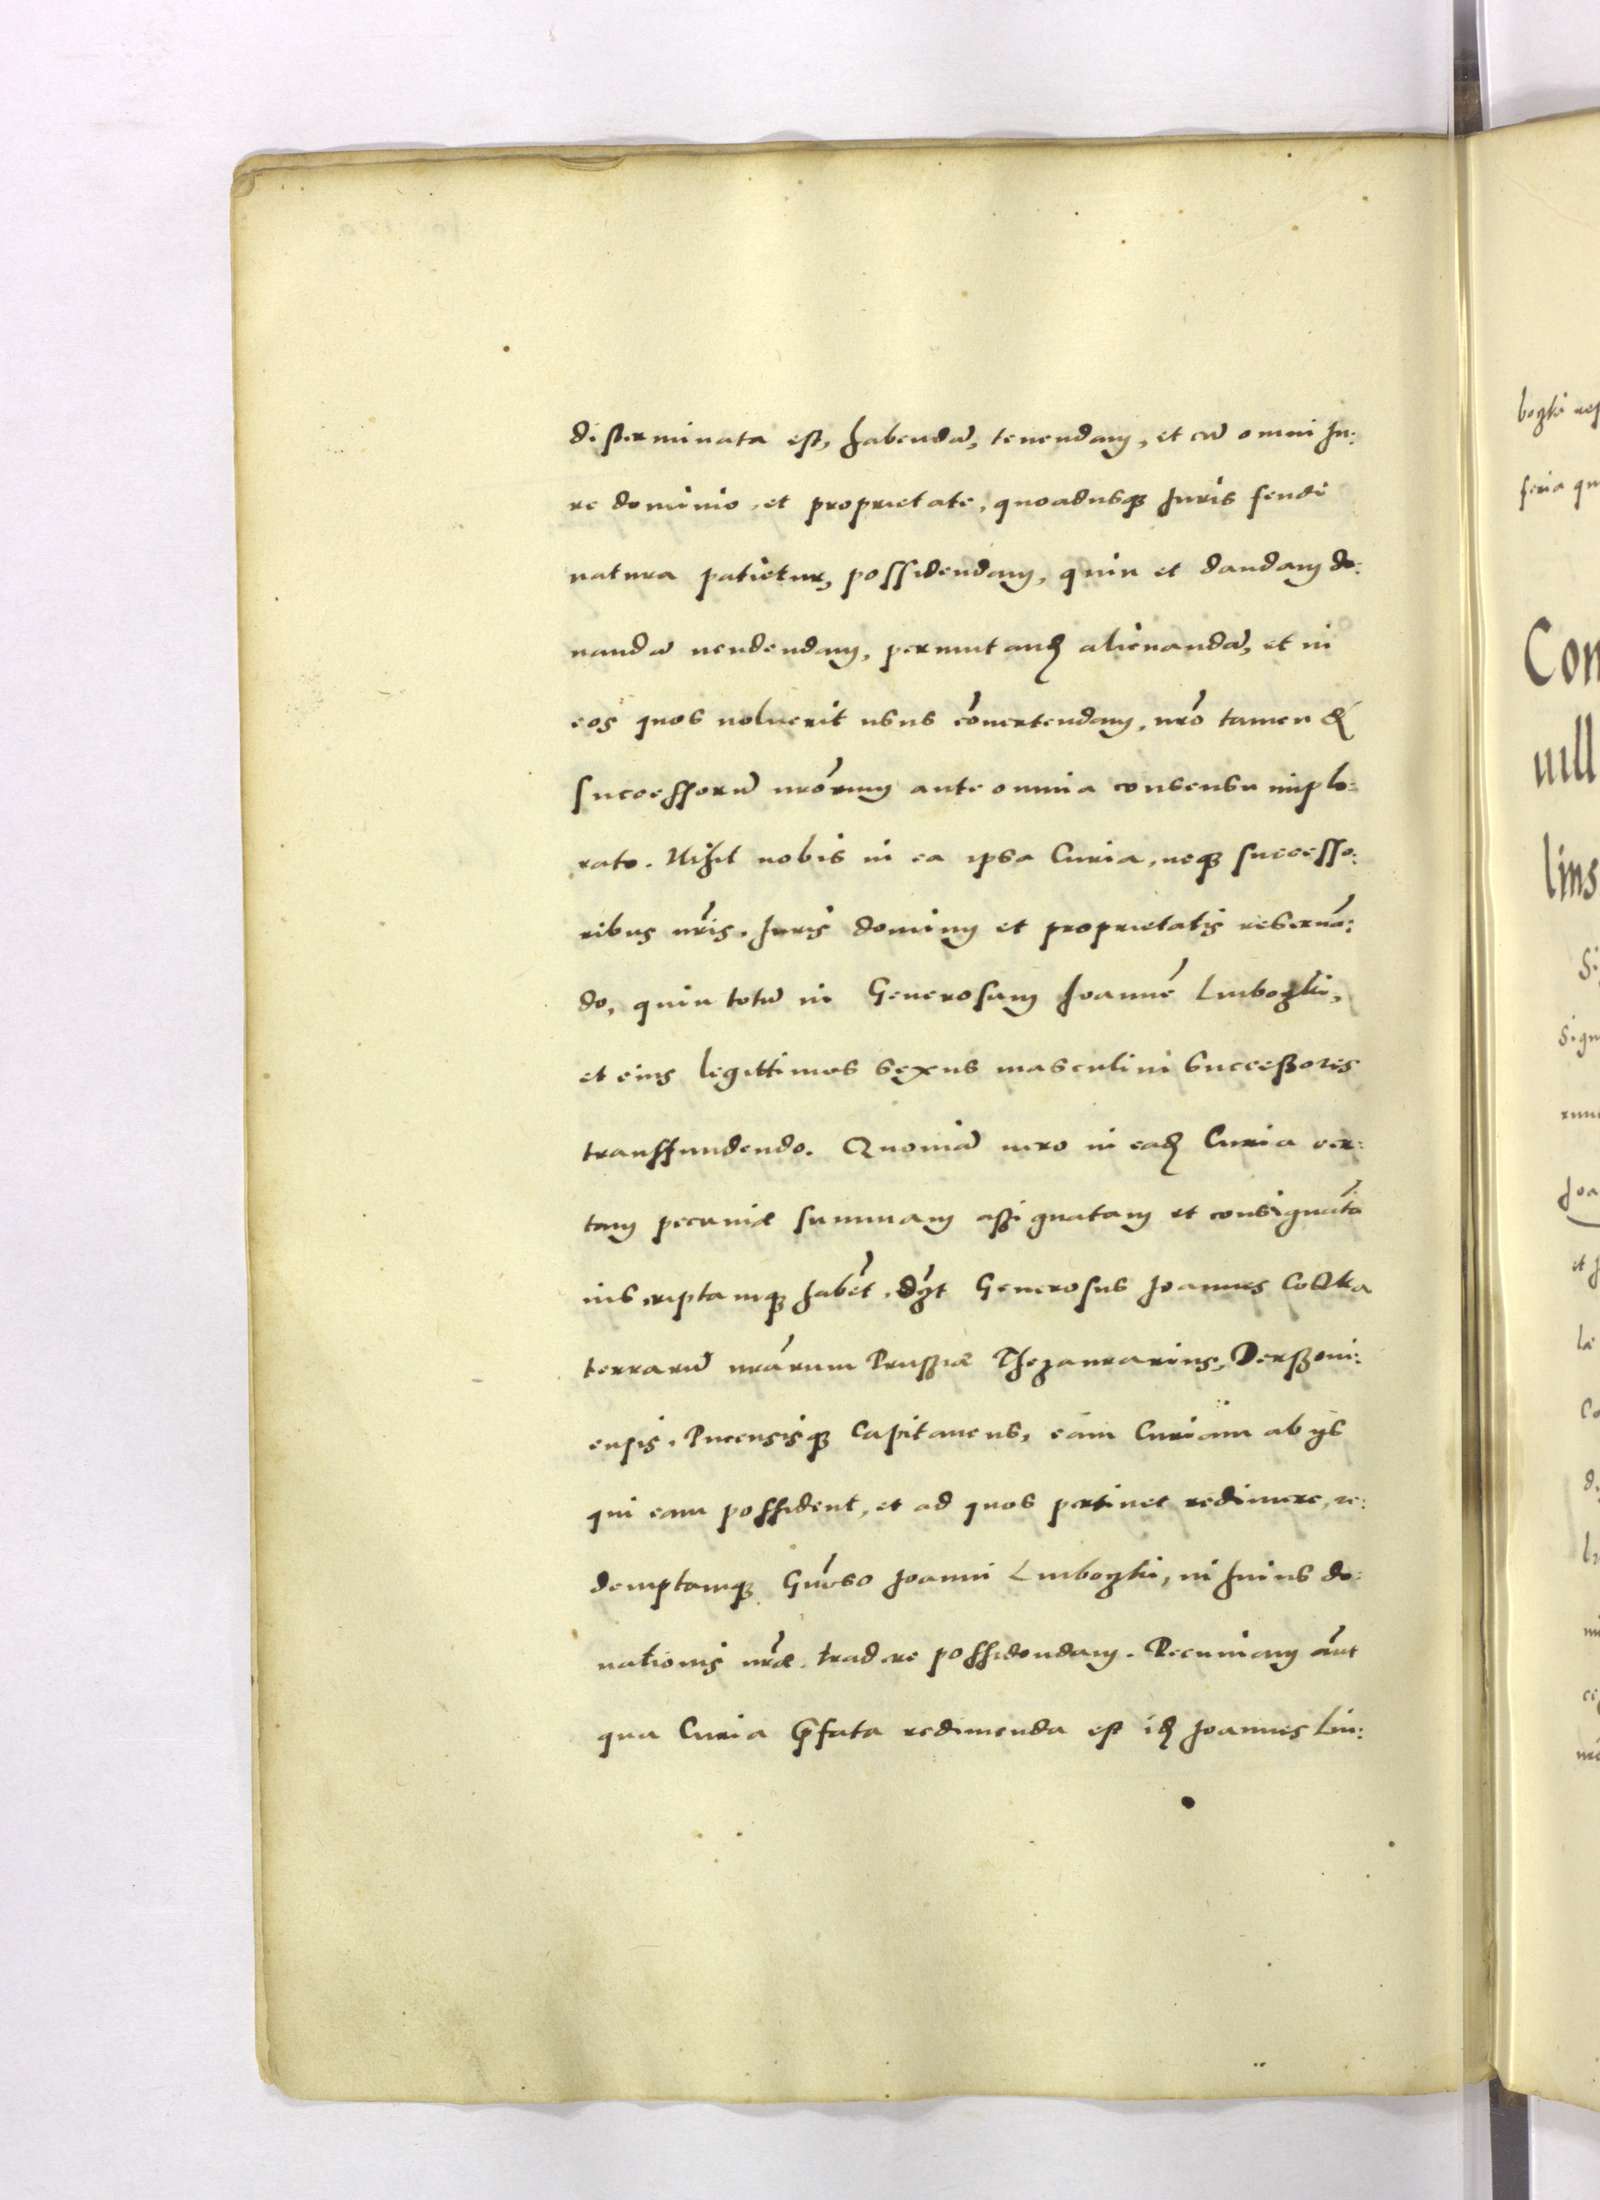 disterminata est, habendã, tenendam, et cũ omni Iu:
re dominio, et proprietate, quoadusq; Iuris feudi
natura patietur, possidendam, quin et dandam do:
nandã uendendam, permutand alienandã, et in
eos quos uoluerit usus cõuertendam, nr̃o tamen &
successorũ nr̃orum ante omnia consensu implo:
rato. Nihil nobis in ea ipsa Curia, neq; successo:
ribus nr̃is, Iuris dominij et proprietatis reseruã:
do, quin totũ in Generosum Joannẽ Linbogki,
et eius legittimos sexus masculini Successores
transfundendo. Quoniã uero in ead Curia cer:
tam pecuniæ summam assignatam et consignatã
inscriptamq; habet,
Generosus Joannes Costka
terrarũ nr̃arum Prussiæ Thezaurarius, Derssoui:
ensis, Pucensisq; Capitaneus, eam Curiam ab ijs
qui eam possident, et ad quos pertinet redimere, re:
demptamq; Gñroso Joanni Linbogki, in huius do:
nationis nr̃æ, tradere possidendam. Pecuniam aũt
qua Curia p̃fata redimenda est id Joannes Lin:
bogki
feria
Con
uill
lins
Si
Sign
rum
Joa
et
læ
Co